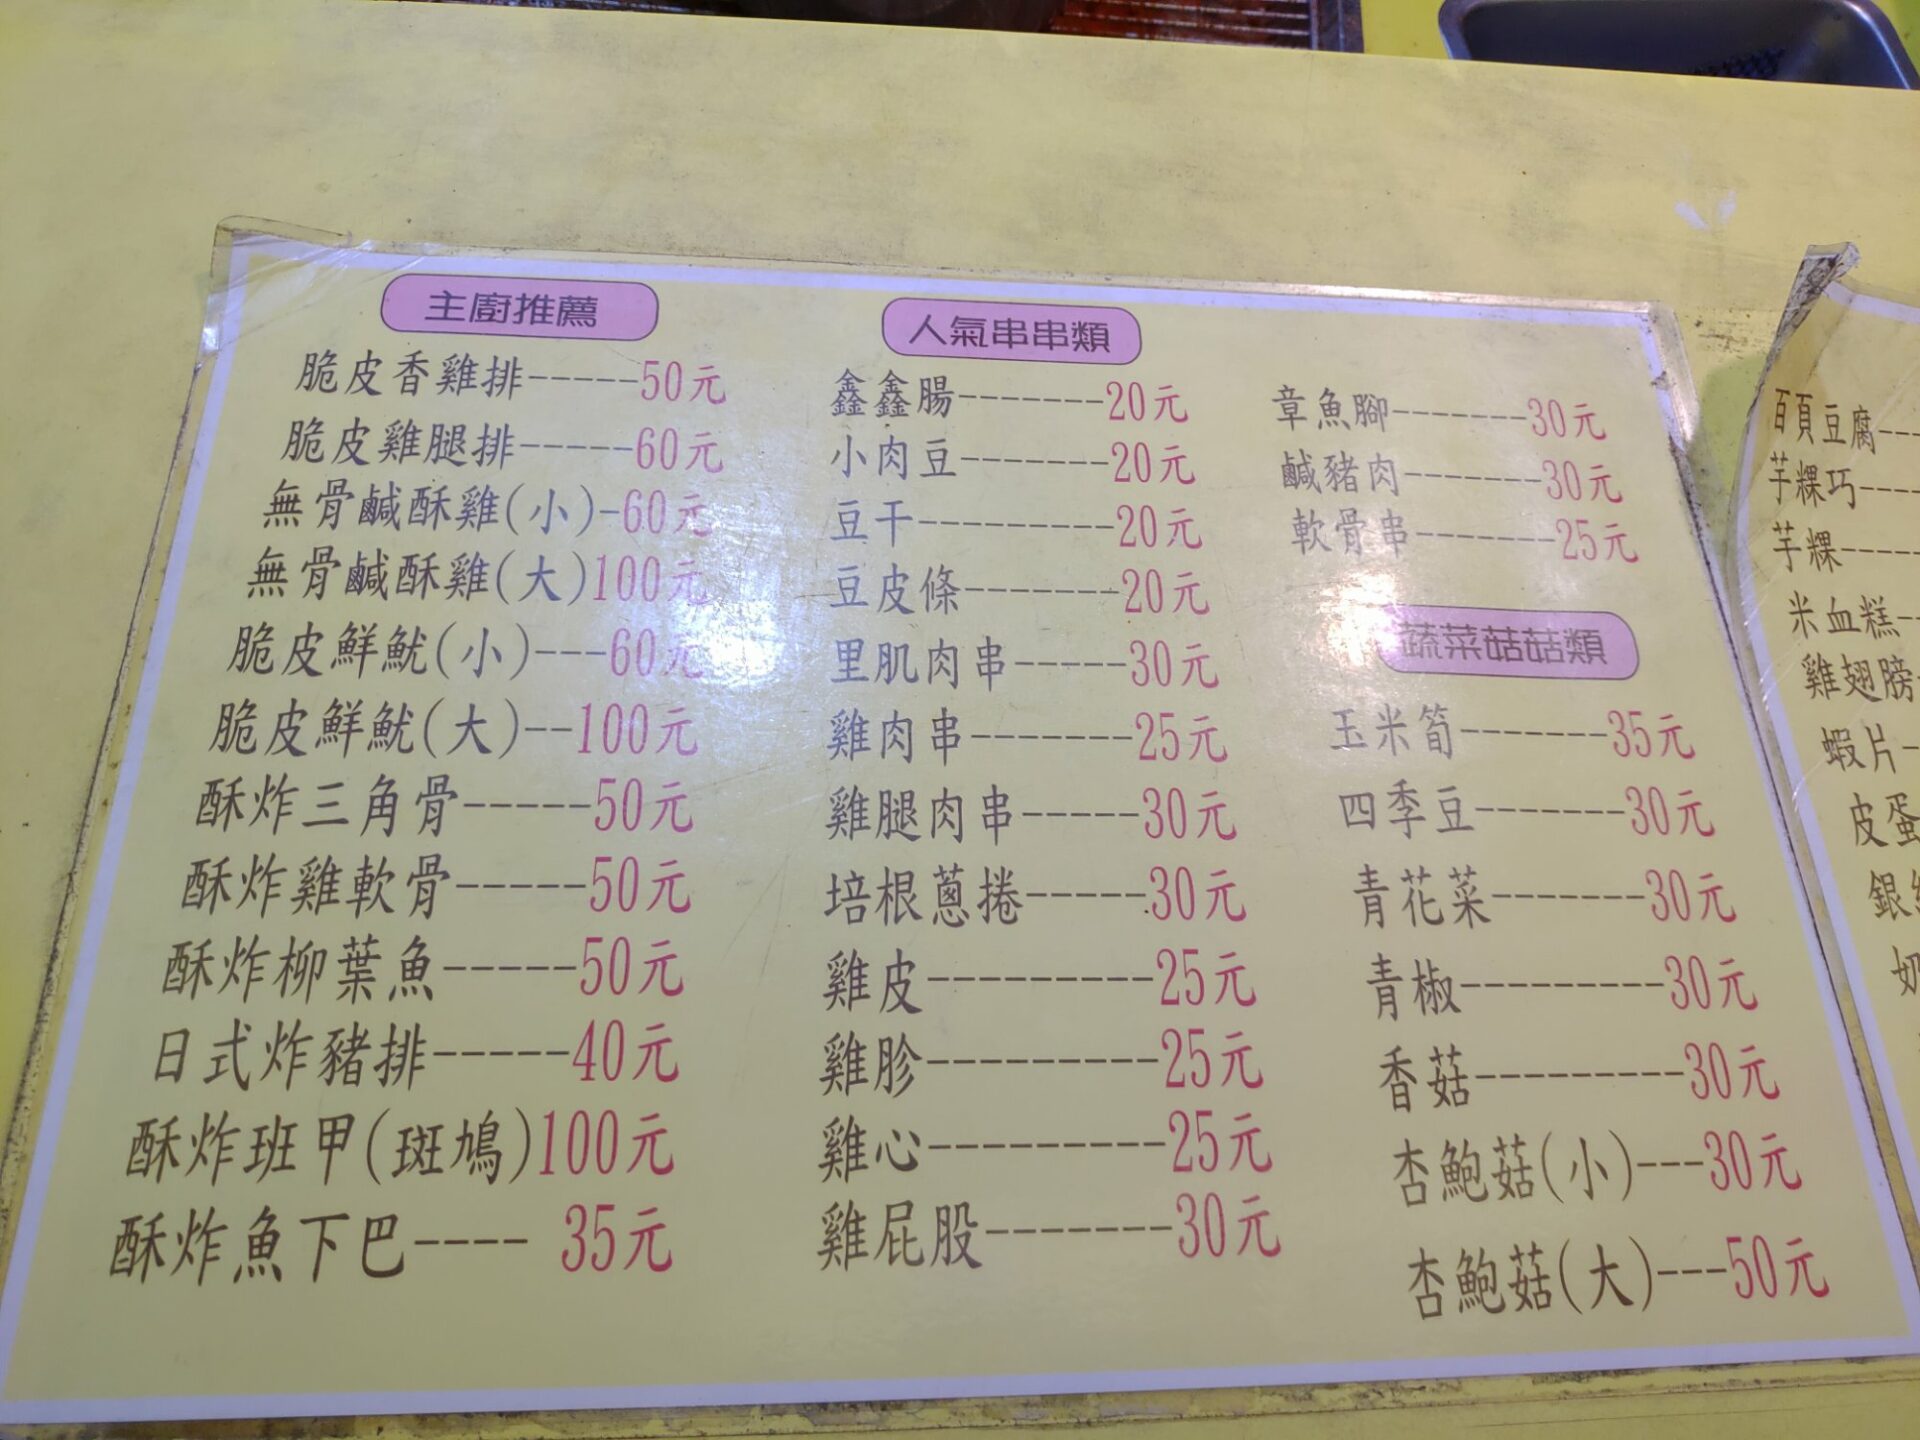 主廚推薦
脆皮香雞排-----50元
脆皮雞腿排-----60元
無骨鹹酥雞(小)-60元
無骨鹹酥雞(大)100元
脆皮鮮魷(小)---60元
脆皮鮮魷(大)--100元
酥炸三角骨-----50元
酥炸雞軟骨-----50元
酥炸柳葉魚-----50元
日式炸豬排-----40元
酥炸班甲(斑鳩)100元
酥炸魚下巴---- 35元
人氣串串類
鑫鑫腸-------20元
小肉豆-------20元
豆干---------20元
豆皮條-------20元
里肌肉串-----30元
雞肉串-------25元
雞腿肉串-----30元
培根蔥捲-----30元
雞皮---------25元
雞胗---------25元
雞心---------25元
雞屁股-------30元
章魚腳-------30元
鹹豬肉-------30元
軟骨串-------25元
蔬菜菇菇類
玉米筍-------35元
四季豆-------30元
青花菜-------30元
青椒---------30元
香菇---------30元
杏鮑菇(小)---30元
杏鮑菇(大)---50元
百頁豆腐--
芋粿巧----
芋粿----
米血糕--
雞翅膀-
蝦片-
皮蛋
銀
奶